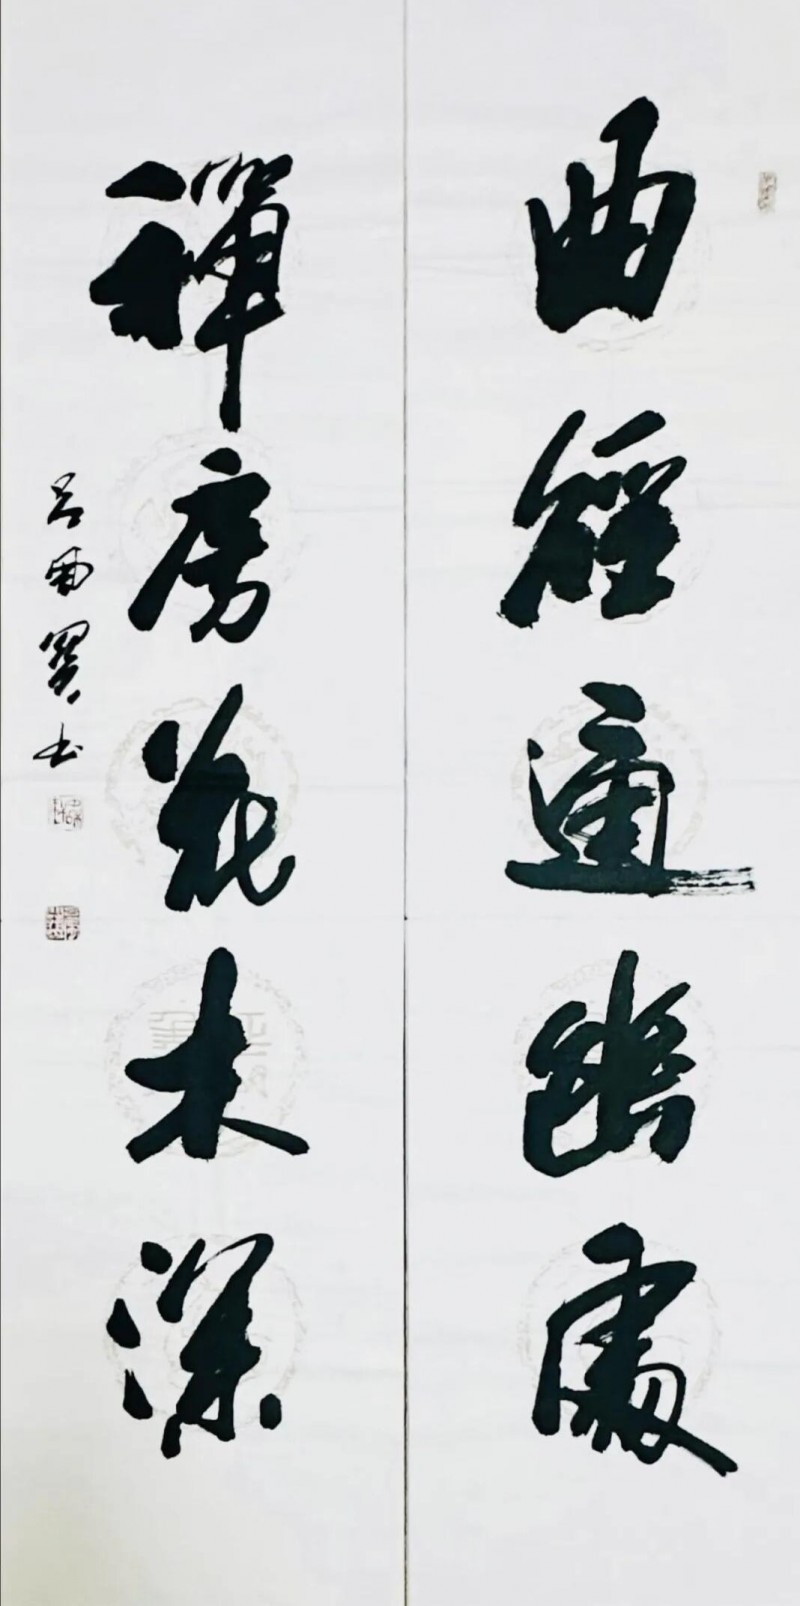 曲徑通幽處
禪房花木深